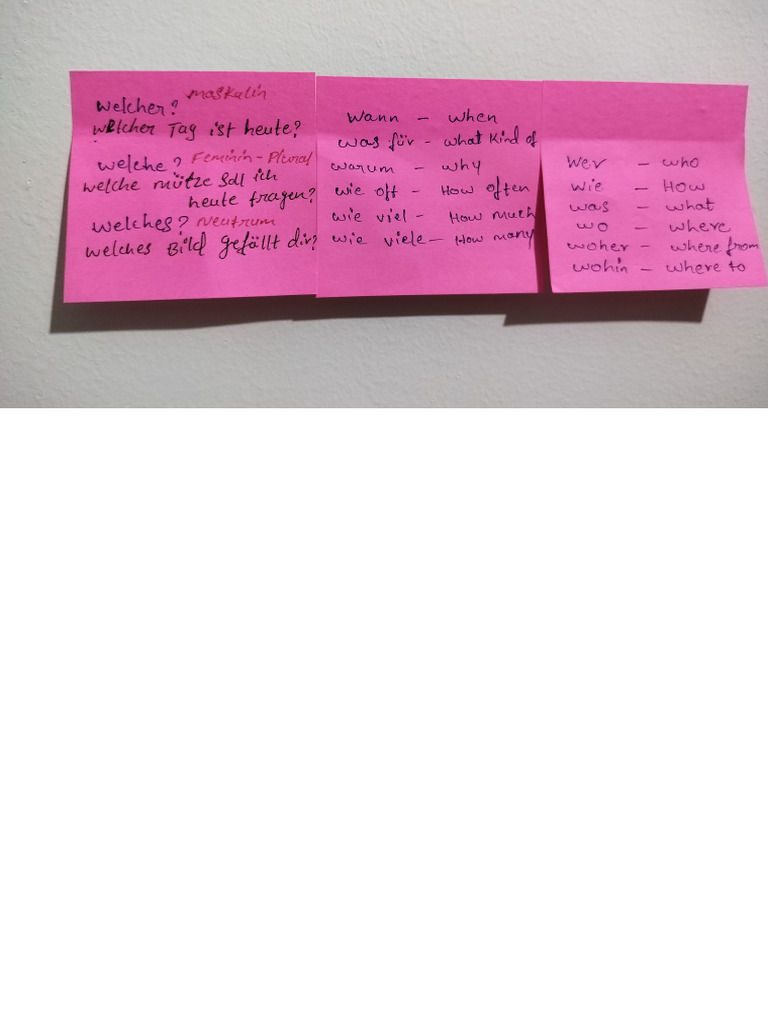 welcher? maskulin
welcher Tag ist heute?
welche? Feminin - Plural
welche mütze soll ich
heute fragen?
welches? Neutrum
welches Bild gefällt dir?
wann - when
was für - what kind of
warum - why
wie oft - How often
wie viel - How much
wie viele - How many
wer - who
wie - How
was - what
wo - where
woher - where from
wohin - where to